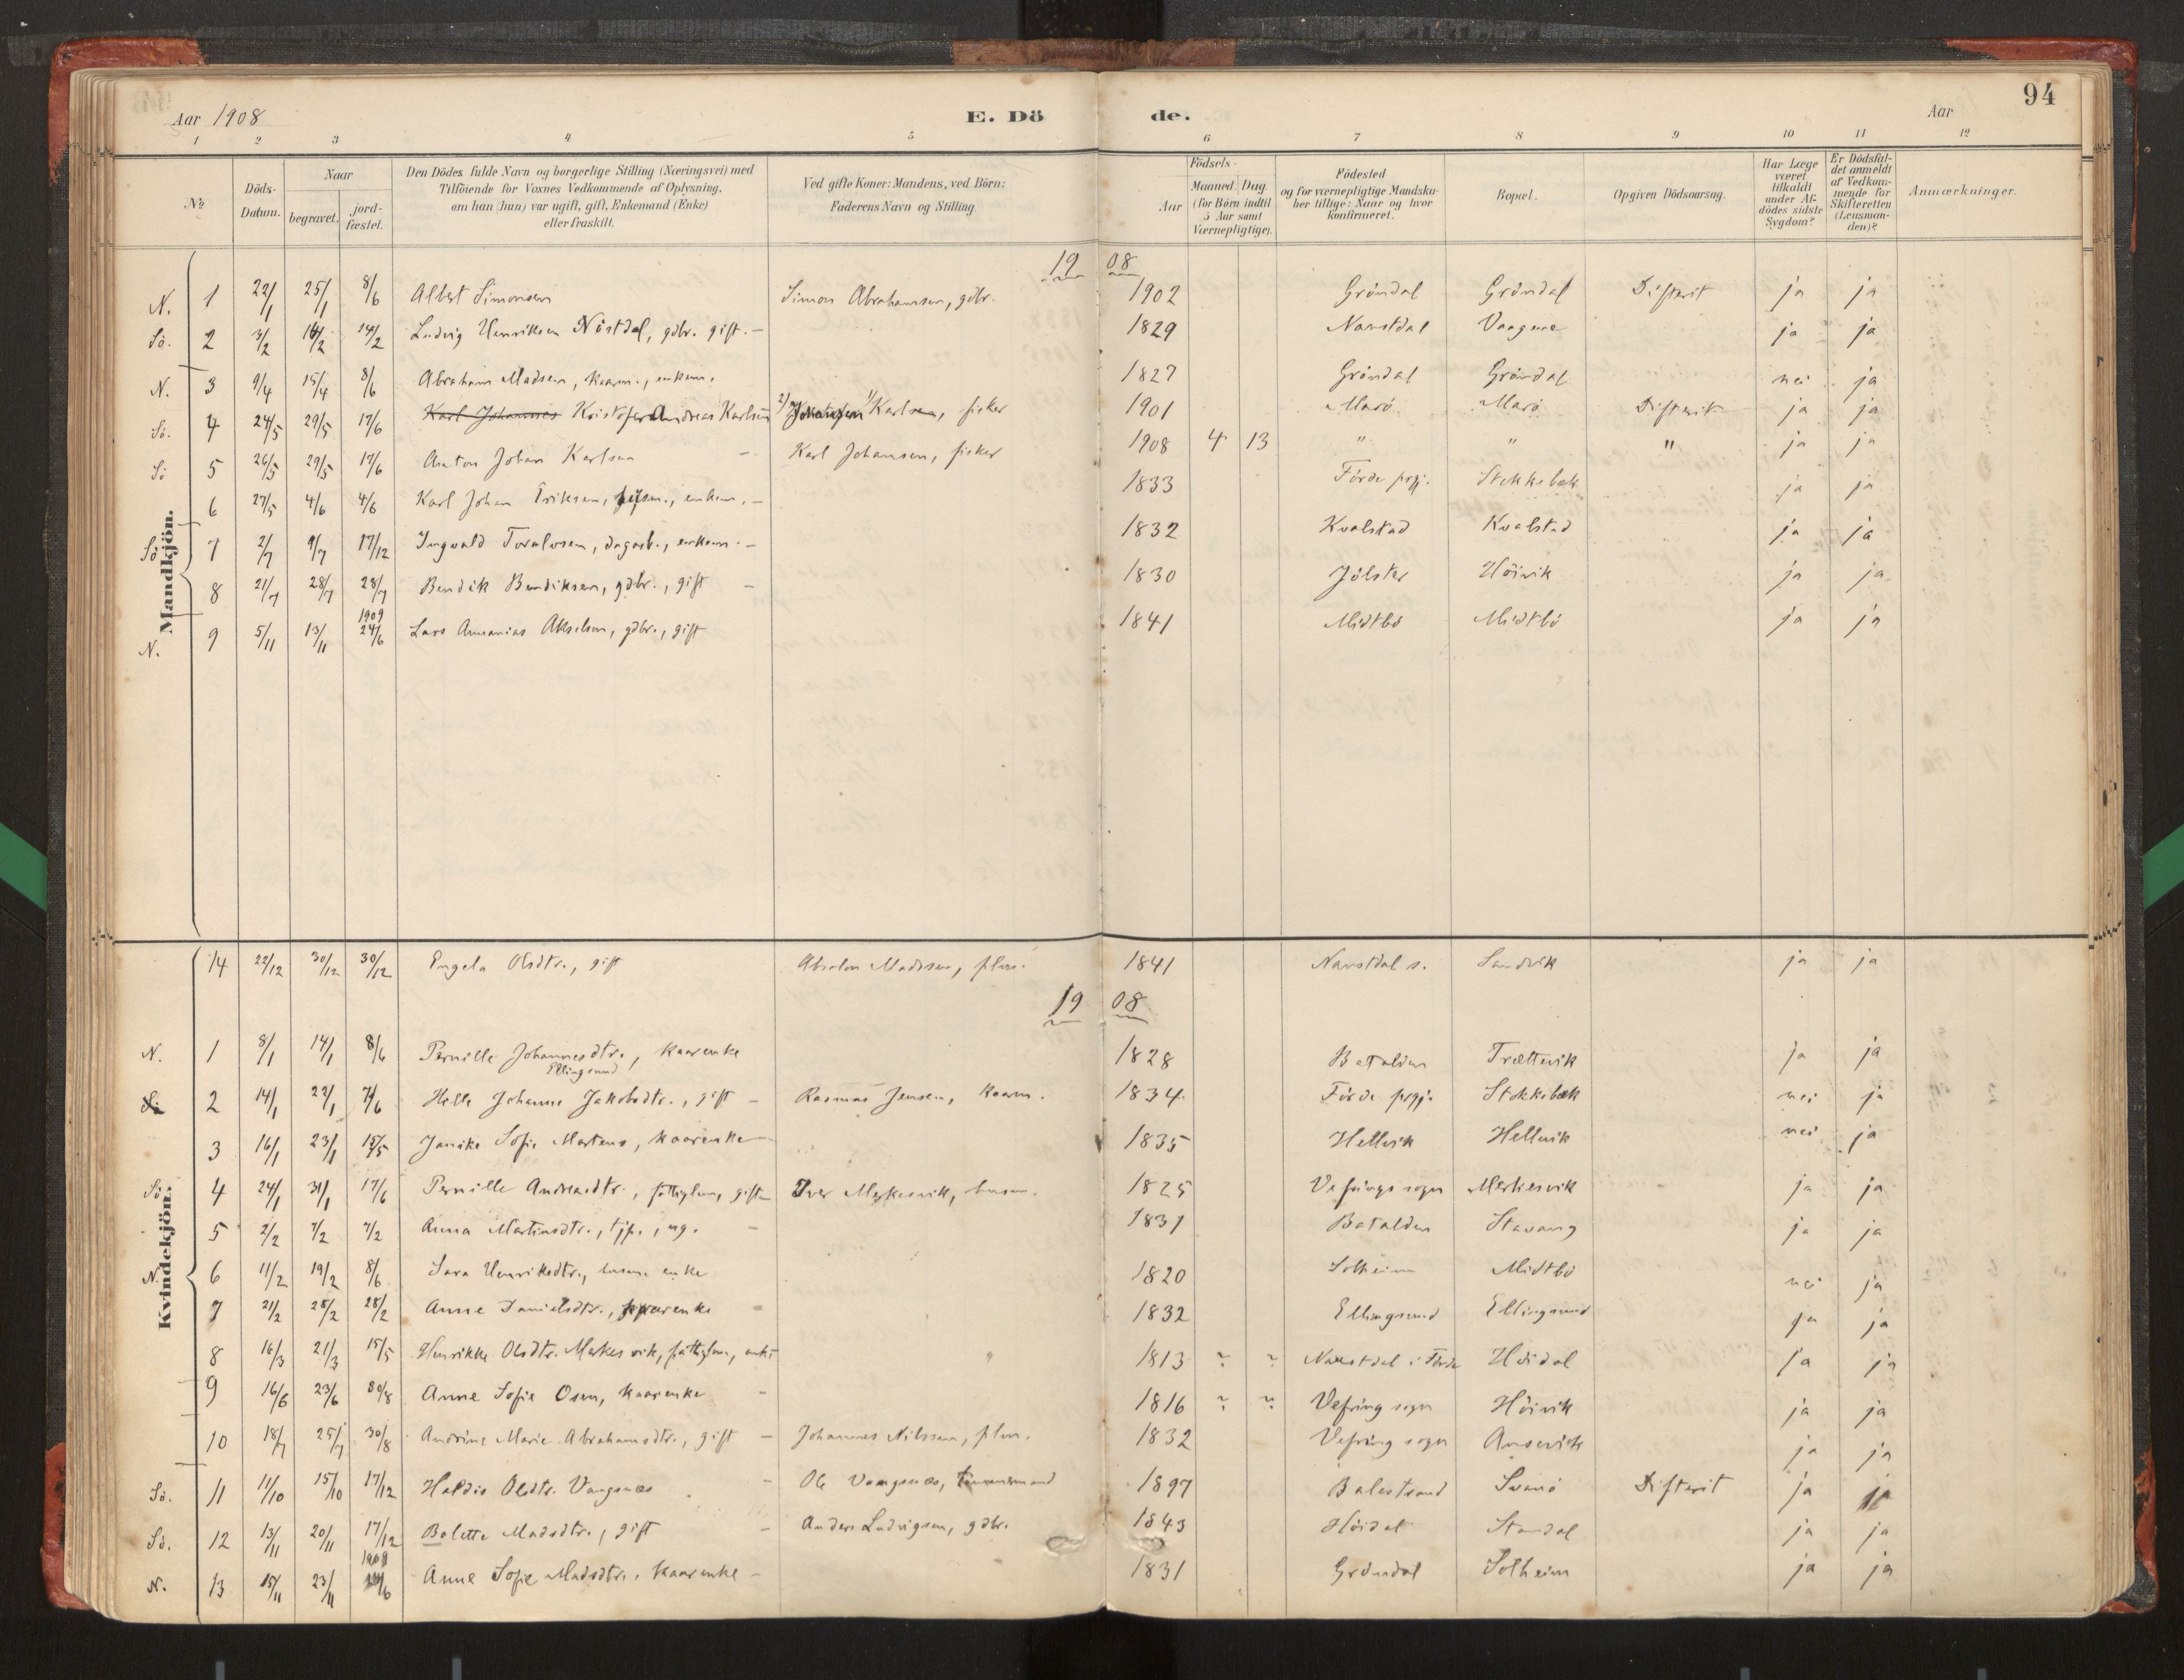 94
Aar 1908
E. Dö de.
Aar
1 2 3 4 5 6 7 8 9 10 11 12
№
Döds-Datum.
Naar
begravet.
jord-fæstet.
Den Dödes fulde Navn og borgerlige Stilling (Næringsvei) med
Tilföiende for Voxnes Vedkommende af Oplysning,
om han (hun) var ugift, gift, Enkemand (Enke)
eller fraskilt.
Ved gifte Koner: Mandens, ved Börn:
Faderens Navn og Stilling.
Födsels-
Aar
Maaned. Dag
(for Börn indtil
5 Aar samt
Værnepligtige).
Födested
og for værnepligtige Mandska-
ber tillige: Naar og hvor
konfirmeret.
Bopæl.
Opgiven Dödsaarsag.
Har Læge
været
tilkaldt
under Af-
dödes sidste
Sygdom?
Er Dödsfal-
det anmeldt
af Vedkom-
mende for
Skifteretten
(Lensman-
den)?
Anmærkninger.
Mandkjön.
1908
N. 1 22/1 25/1 8/6 Albert Simonsen Simon Abrahamsen, gdbr. 1902 Gröndal Gröndal Difterit ja ja
Sö. 2 3/2 14/2 14/2 Ludvig Henriksen Nöstdal, gdbr. gift. - 1829 Naustdal Vaagene ja ja
N. 3 9/4 15/4 8/6 Abraham Madsen, kaarm., enkem. 1827 Gröndal Gröndal nei ja
Sö. 4 24/5 29/5 17/6 Karl Johannes Kristofer Andreas Karlsen 2) Johansen 1) Karl, fisker 1901 Marö Marö Difterit ja ja
Sö 5 26/5 29/5 17/6 Anton Johan Karlsen - Karl Johansen, fisker 1908 4 13 " " " ja ja
6 27/5 4/6 4/6 Karl Johan Eriksen, enkem. - 1833 Förde prgj. Stokkebæk ja ja
Sö 7 2/7 9/7 17/12 Ingvald Toralvsen, dagarb., enkem. - 1832 Kvalstad Kvalstad ja ja
8 21/7 28/7 28/7 Bendik Bendiksen, gdbr., gift - 1830 Jölster Höivik ja ja
N. 9 5/11 13/11 1909 24/6 Lars Annanias Akselsen, gdbr., gift 1841 Midtbö Midtbö ja ja
Kvindekjön.
14 22/12 30/12 30/12 Engela Olsdtr., gift Absalon Madssen, plm. 1841 Naustdal s. Sandvik ja ja
1908
N. 1 8/1 14/1 8/6 Pernille Johannesdtr., kaarenke Ellingsund 1828 Batalden Trættevik ja ja
Sö 2 14/1 22/1 7/6 Helle Johanne Jakobsdtr., gift - Rasmus Jensen, kaarm. 1834 Förde prgj. Stokkebæk nei ja
3 16/1 23/1 15/5 Janike Sofie Martens, kaarenke 1835 Hellvik Hellvik nei ja
Sö. 4 24/1 31/1 17/6 Pernille Andreasdtr., fattiglem, gift Iver Merkesvik, husm. 1825 Vefrings sogn Merkesvik ja ja
5 2/2 7/2 7/2 Anna Martinsdtr., tjp., ug. - 1831 Batalden Stavang ja ja
N. 6 11/2 19/2 8/6 Sara Henriksdtr., husm. enke 1820 Solheim Midtbö nei ja
7 21/2 28/2 28/2 Anne Danielsdtr., kaarenke - 1832 Ellingsund Ellingsund ja ja
8 16/3 21/3 15/5 Henrikke Olsdtr. Merkesvik, fattiglem, enke 1813 ? ? Naustdal i Förde Höidal ja ja
9 16/6 23/6 30/8 Anne Sofie Osen, kaarenke - 1816 ? ? Vefring sogn Höivik ja ja
10 18/7 25/7 30/8 Andrine Marie Abrahamsdtr., gift - Johannes Nilssen, plm. 1832 Vefring sogn Ausevik ja ja
Sö. 11 11/10 15/10 17/12 Haldis Olsdtr. Vangsnæs - Ole Vangsnæs, tömmermand 1897 Balestrand Svanö Difterit ja ja
Sö. 12 13/11 20/11 17/12 Bolette Madsdtr., gift - Anders Ludvigsen, gdbr. 1843 Höidal Standal ja ja
N. 13 15/11 23/11 1909 24/6 Anne Sofie Madsdtr., kaarenke - 1831 Gröndal Solheim ja ja